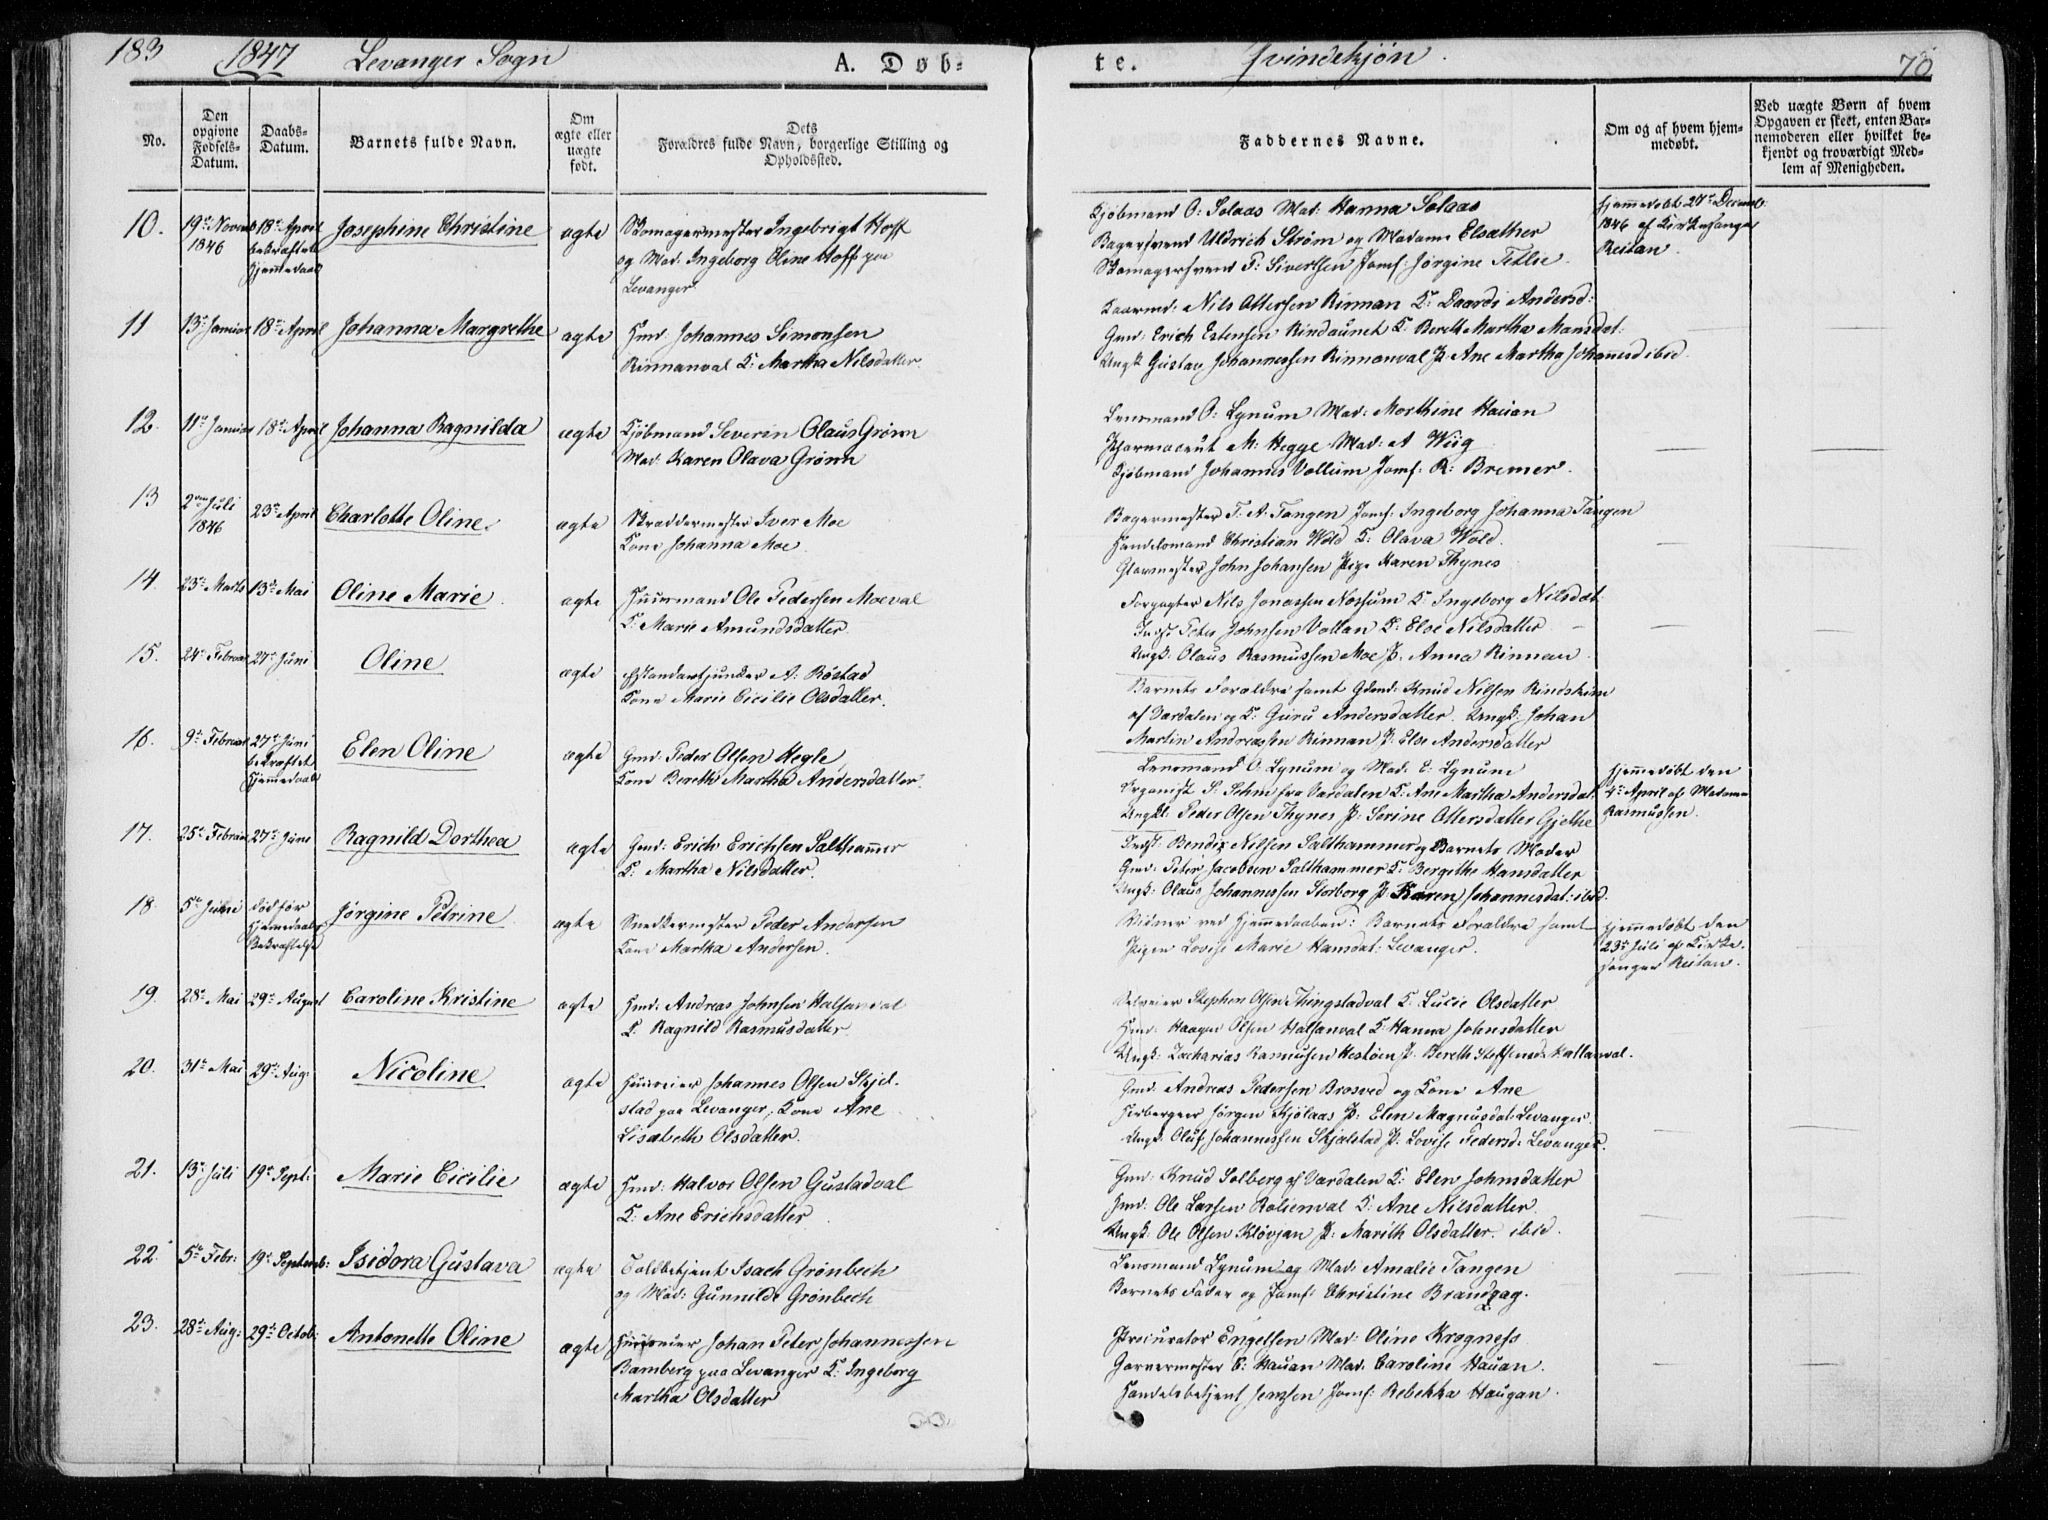 183 1847 Levanger Sogn A. Døb-
No.
Den opgivne Fødsels-Datum.
Daabs-Datum.
Barnets fulde Navn.
Om ægte eller uægte født.
Dets Forældres fulde Navn, borgerlige Stilling og Opholdssted.
10. 19de Novemb 1846 18de April bekræftet hjemmedaab Josephine Christine ægte Skomagermester Ingebrigt Hoff
og Mad: Ingeborg Oline Hoff paa
Levanger
11 13de Januar 18de April Johanna Margrethe ægte Hmd: Johannes Simonsen
Rinnanval K: Martha Nilsdatter.
12. 11te Januar 18de April Johanna Ragnilda ægte Kjøbmand Severin Olaus Grønn
Mad: Karen Olava Grønn
13 2den Juli 1846 23de April Charlotte Oline. ægte Skræddermester Iver Moe
Kone Johanna Moe
14. 23de Marts 13de Mai Oline Marie ægte Huusmand Ole Pedersen Moeval
K: Marie Amundsdatter.
15. 24de Februar 27de Juni Oline ægte Standartjunker A: Røstad
Kone Marie Cicilie Olsdatter.
16. 9de Februar 27de Juni bekræftet hjemmedaab Elen Oline ægte Gmd: Peder Olsen Hegle,
Kone Bereth Martha Andersdatter.
17. 25de Februar 27de Juni Ragnild Dorthea ægte Gmd: Erich Erichsen Salthammer
K: Martha Nilsdatter.
18. 5te Juni død før Hjemmedaabs Bekræftelse Jørgine Petrine ægte Snedkermester Peder Andersen
Kone Martha Andersen.
19. 28de Mai 29de August Caroline Kristine ægte Hmd: Andreas Johnsen Halsanval
K: Ragnild Rasmusdatter.
20. 31te Mai 29de Aug: Nicoline ægte Huuseier Johannes Olsen Skjel-
stad paa Levanger, Kone Ane
Lisabeth Olsdatter.
21. 13de Juli 19de Sept: Marie Cicilie ægte Hmd: Halvor Olsen Gustadval
K: Ane Erichsdatter.
22. 5te Febr: 19de Septemb: Isidora Gustava ægte Toldbetjent Isach Grønbech
og Mad: Gunnilde Grønbech
23. 28de Aug: 29de Octob: Antonette Oline ægte Huuseier Johan Peter Johannessen
Bamberg paa Levanger K: Ingeborg
Martha Olsdatter
te. Qvindekjøn. 70
Faddernes Navne.
Om og af hvem hjemmedøbt.
Ved uægte Børn af hvem Opgaven er skeet, enten Barnemoderen eller hvilket bekjendt og troværdigt Medlem af Menigheden.
Kjøbmand O: Solaas Mad: Hanna Solaas
Bagersvend Uldrich Strøm og Madame Elsather
Skomagersvend P: Sivertsen Jomf: Jørgine Tetlie.
Hjemmedøbt 27de Decemb: 1846 af Kirkesanger Reitan.
Kaarmd: Nils Ottersen Rinnan K: Daardi Andersd:
Gmd: Erich Estensen Rindaunet K: Bereth Martha Mansdat:
Ungk Gustav Johannessen Rinnanval P: Ane Martha Johannesd ibid.
Lensmand O: Lynum Mad: Morthine Hauan
Pharmaceut M: Hegge Mad: A Wiig
Kjøbmand Johannes Vollum Jomf: R: Bremer.
Bagermester T. A. Tangen Jomf: Ingeborg Johanna Tangen
Handelsmand Christian Wold K: Olava Wold.
Glarmester John Johansen Pige Karen Thynes
Forpagter Nils Jonassen Nossum K: Ingeborg Nilsdat
Indst Peter Johnsen Vollan K: Else Nilsdatter
Ungk: Olaus Rasmussen Moe P: Anna Rinnan
Barnets Forældre samt Gdmd: Knud Nilsen Rindsheim
af Værdalen og K: Guru Andersdatter. Ungk: Johan
Martin Andreassen Rinnan P: Else Andersdatter
Lensmand O: Lynum og Mad. E: Lynum
Organist S: Sehm fra Værdalen K: Ane Martha Andersdat:
Ungkl: Peder Olsen Thynes P: Serine Ottersdatter Gjethe
Hjemmedøbt den 4de April af Madame Rasmussen.
Indst: Bendix Nilsen Salthammer og Barnets Moder
Gmd: Peter Jacobsen Salthammer K: Bergithe Hansdatter
Ungk: Olaus Johannessen Storborg P: Karen Johannesdat: ibid.
Vidner ved Hjemmedaaben: Barnets Forældre samt
Pigen Lovise Marie Hansdat: Levanger.
Hjemmedøbt den 23de Juli af Kirkesanger Reitan.
Selveier Stephen Olsen Thingstadval K: Lucie Olsdatter
Hmd: Haagen Olsen Halsanval K: Hanna Johnsdatter
Ungk: Zacharias Rasmusen Hestøen P: Bereth Steffensd: Hallanval.
Gmd: Andreas Pedersen Brosved og Kone Ane
Herbergeer Jørgen Kjølaas P: Elen Magnusdat: Levanger
Ungk: Oluf Johannessen Skjelstad P: Lovise Pedersd: Levanger.
Gmd: Knud Solberg af Værdalen K: Elen Johnsdatter
Hmd: Ole Larsen Rolienval K: Ane Nilsdatter.
Ungk: Ole Olsen Kløvjan P: Marith Olsdatter. ibid.
Lensmand Lynum og Mad: Amalie Tangen
Barnets Fader og Jomf: Christine Brandzag.
Procurator Engelsen Mad: Oline Krogness
Garvermester C: Hauan Mad: Caroline Hauan.
Handelsbetjent Jenssen Jomf: Rebekka Haugan.